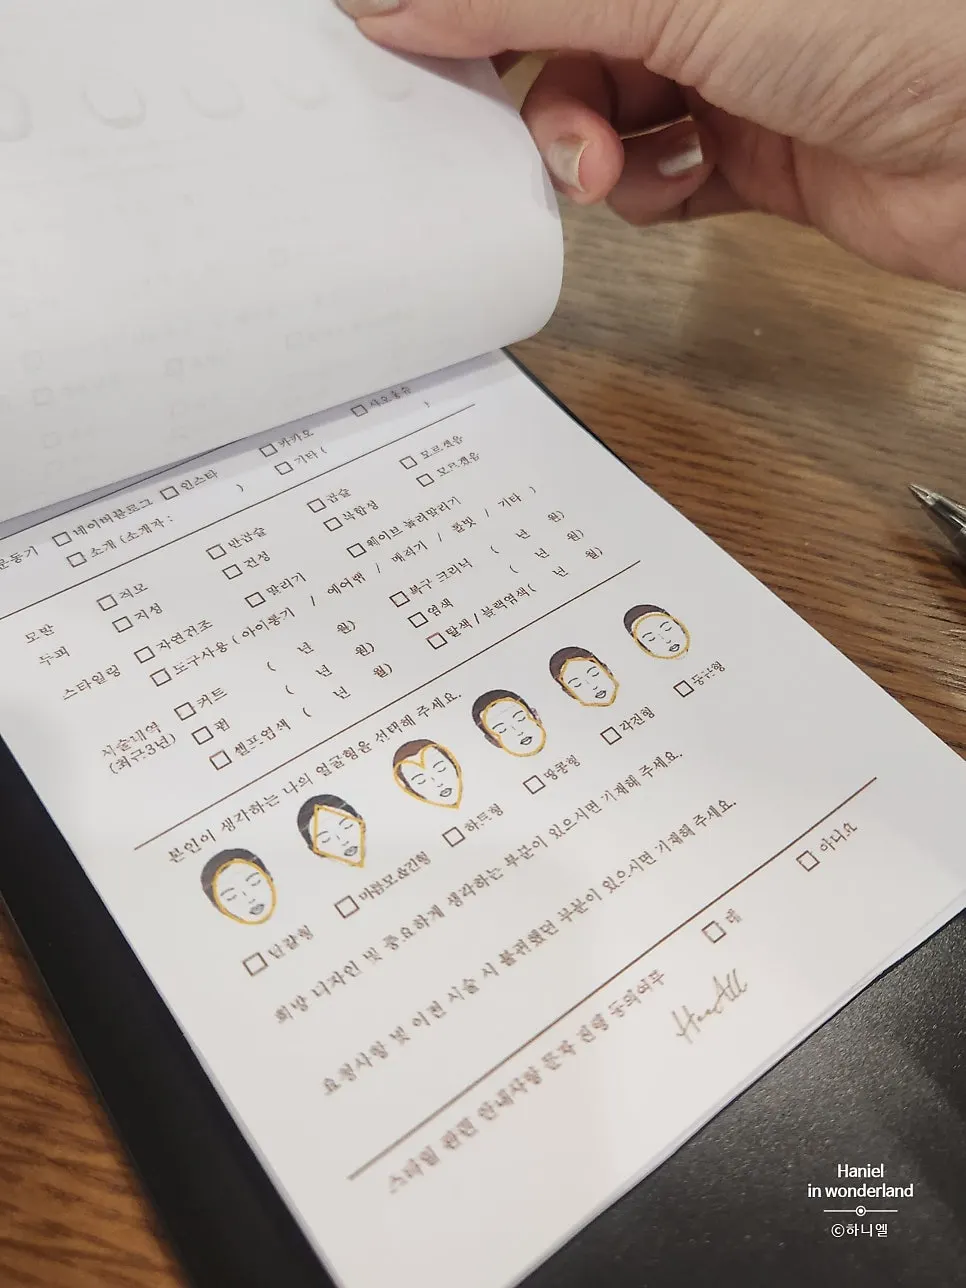 ☐ 네이버블로그 ☐ 인스타 ☐ 카카오
☐ 소개 (소개자 : ) ☐ 기타 ( )
모발 ☐ 직모 ☐ 반곱슬 ☐ 곱슬 ☐ 모르겠음
두피 ☐ 지성 ☐ 건성 ☐ 복합성 ☐ 모르겠음
스타일링 ☐ 자연건조 ☐ 말리기 ☐ 웨이브 놀려말리기
☐ 도구사용 ( 아이롱기 / 에어랩 / 매직기 / 롤빗 / 기타 )
시술내역 ☐ 커트 ( 년 월) ☐ 복구 크리닉 ( 년 월)
(최근3년) ☐ 펌 ( 년 월) ☐ 염색 ( 년 월)
☐ 셀프염색 ( 년 월) ☐ 탈색 / 블랙염색( 년 월)
본인이 생각하는 나의 얼굴형을 선택해 주세요.
☐ 달걀형 ☐ 마름모&긴형 ☐ 하트형 ☐ 땅콩형 ☐ 각진형 ☐ 둥근형
희망 디자인 및 중요하게 생각하는 부분이 있으시면 기재해 주세요.
요청사항 및 이전 시술 시 불편했던 부분이 있으시면 기재해 주세요.
스타일 관련 안내사항 문자 진행 동의여부 ☐ 네 ☐ 아니요
Haniel
in wonderland
©하니엘